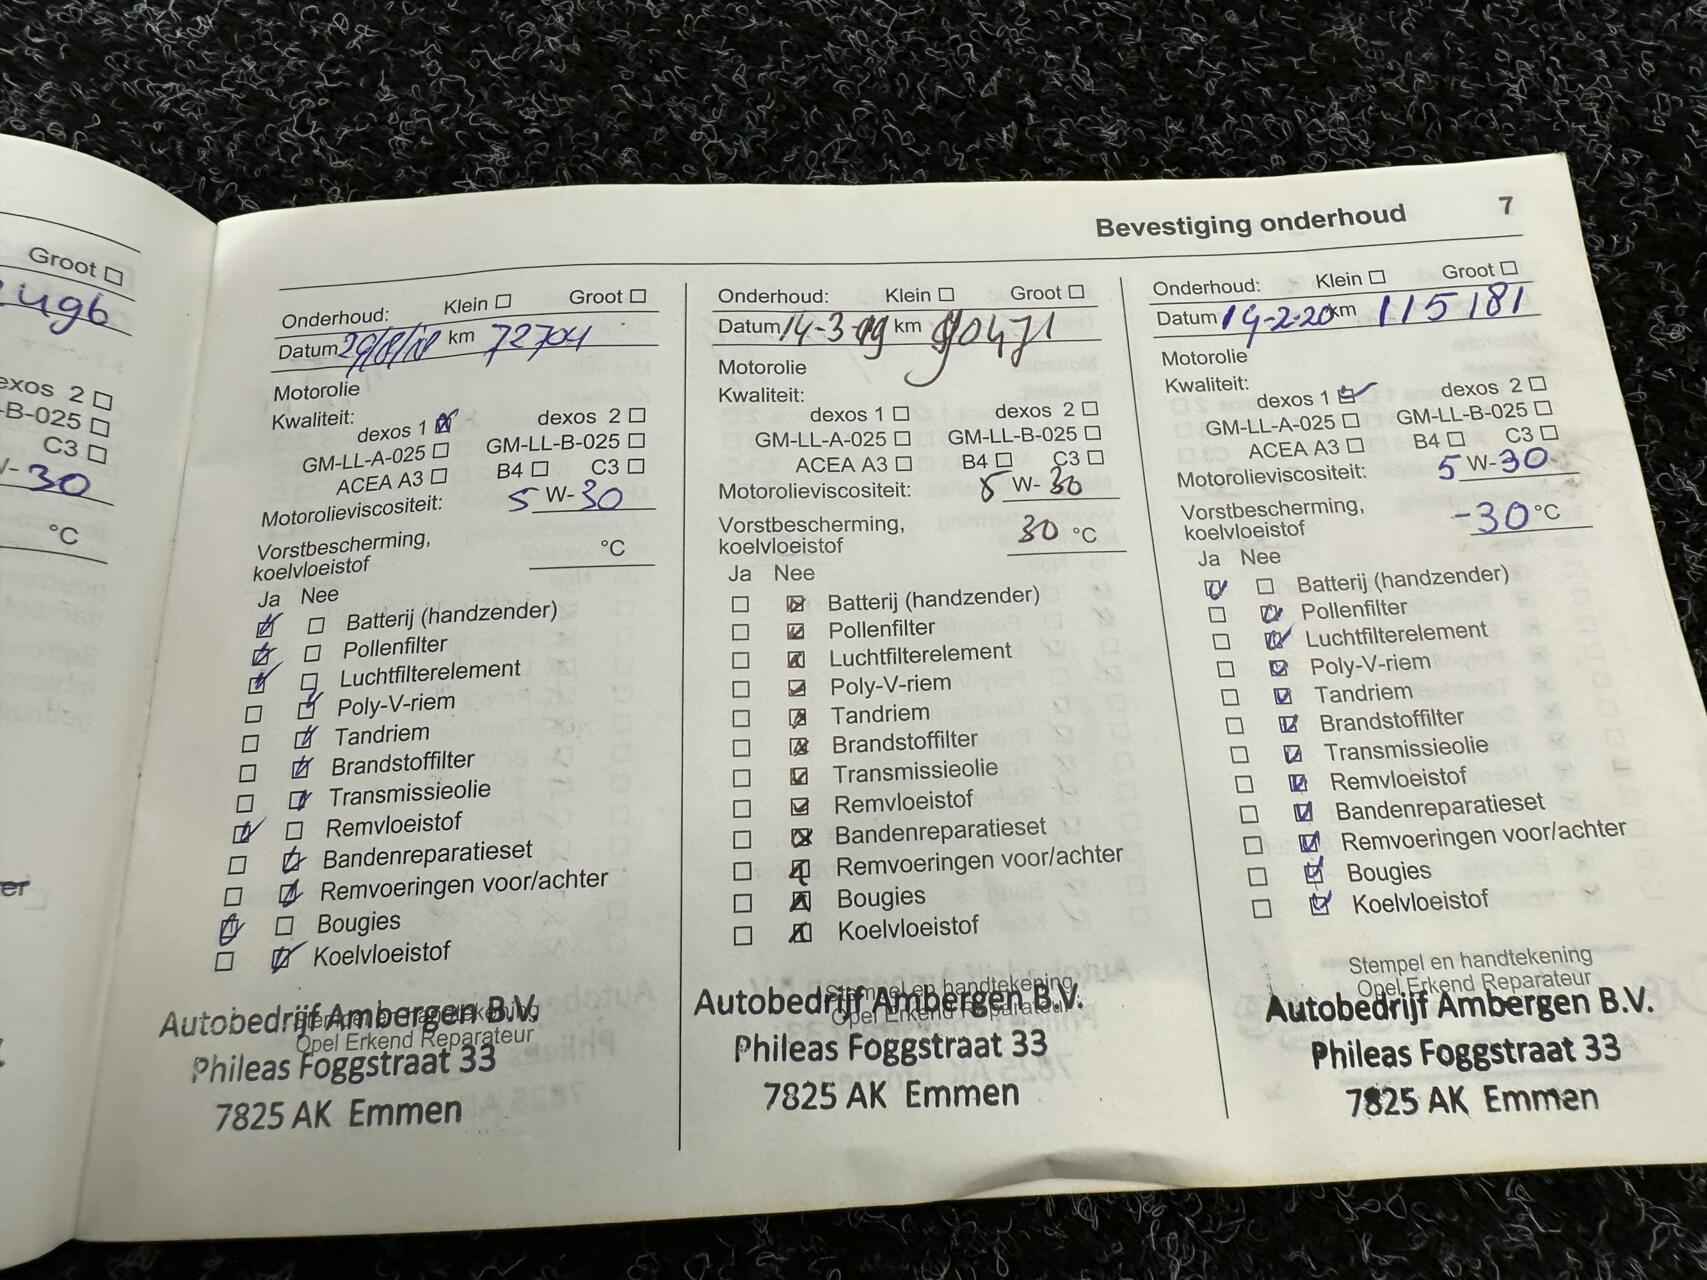 Groot
2496
exos 2
-B-025
C3
-30
°C
er
Bevestiging onderhoud 7
Onderhoud: Klein Groot
Datum km 72704
Motorolie
Kwaliteit:
dexos 1 dexos 2
GM-LL-A-025 GM-LL-B-025
ACEA A3 B4 C3
Motorolieviscositeit: 5 W-30
Vorstbescherming,
koelvloeistof °C
Ja Nee
Batterij (handzender)
Pollenfilter
Luchtfilterelement
Poly-V-riem
Tandriem
Brandstoffilter
Transmissieolie
Remvloeistof
Bandenreparatieset
Remvoeringen voor/achter
Bougies
Koelvloeistof
Stempel en handtekening
Opel Erkend Reparateur
Autobedrijf Ambergen B.V.
Phileas Foggstraat 33
7825 AK Emmen
Onderhoud: Klein Groot
Datum 14-3-19 km 90471
Motorolie
Kwaliteit:
dexos 1 dexos 2
GM-LL-A-025 GM-LL-B-025
ACEA A3 B4 C3
Motorolieviscositeit: 5 W-30
Vorstbescherming,
koelvloeistof 30 °C
Ja Nee
Batterij (handzender)
Pollenfilter
Luchtfilterelement
Poly-V-riem
Tandriem
Brandstoffilter
Transmissieolie
Remvloeistof
Bandenreparatieset
Remvoeringen voor/achter
Bougies
Koelvloeistof
Stempel en handtekening
Opel Erkend Reparateur
Autobedrijf Ambergen B.V.
Phileas Foggstraat 33
7825 AK Emmen
Onderhoud: Klein Groot
Datum 14-2-20 km 115181
Motorolie
Kwaliteit:
dexos 1 dexos 2
GM-LL-A-025 GM-LL-B-025
ACEA A3 B4 C3
Motorolieviscositeit: 5 W-30
Vorstbescherming,
koelvloeistof -30 °C
Ja Nee
Batterij (handzender)
Pollenfilter
Luchtfilterelement
Poly-V-riem
Tandriem
Brandstoffilter
Transmissieolie
Remvloeistof
Bandenreparatieset
Remvoeringen voor/achter
Bougies
Koelvloeistof
Stempel en handtekening
Opel Erkend Reparateur
Autobedrijf Ambergen B.V.
Phileas Foggstraat 33
7825 AK Emmen